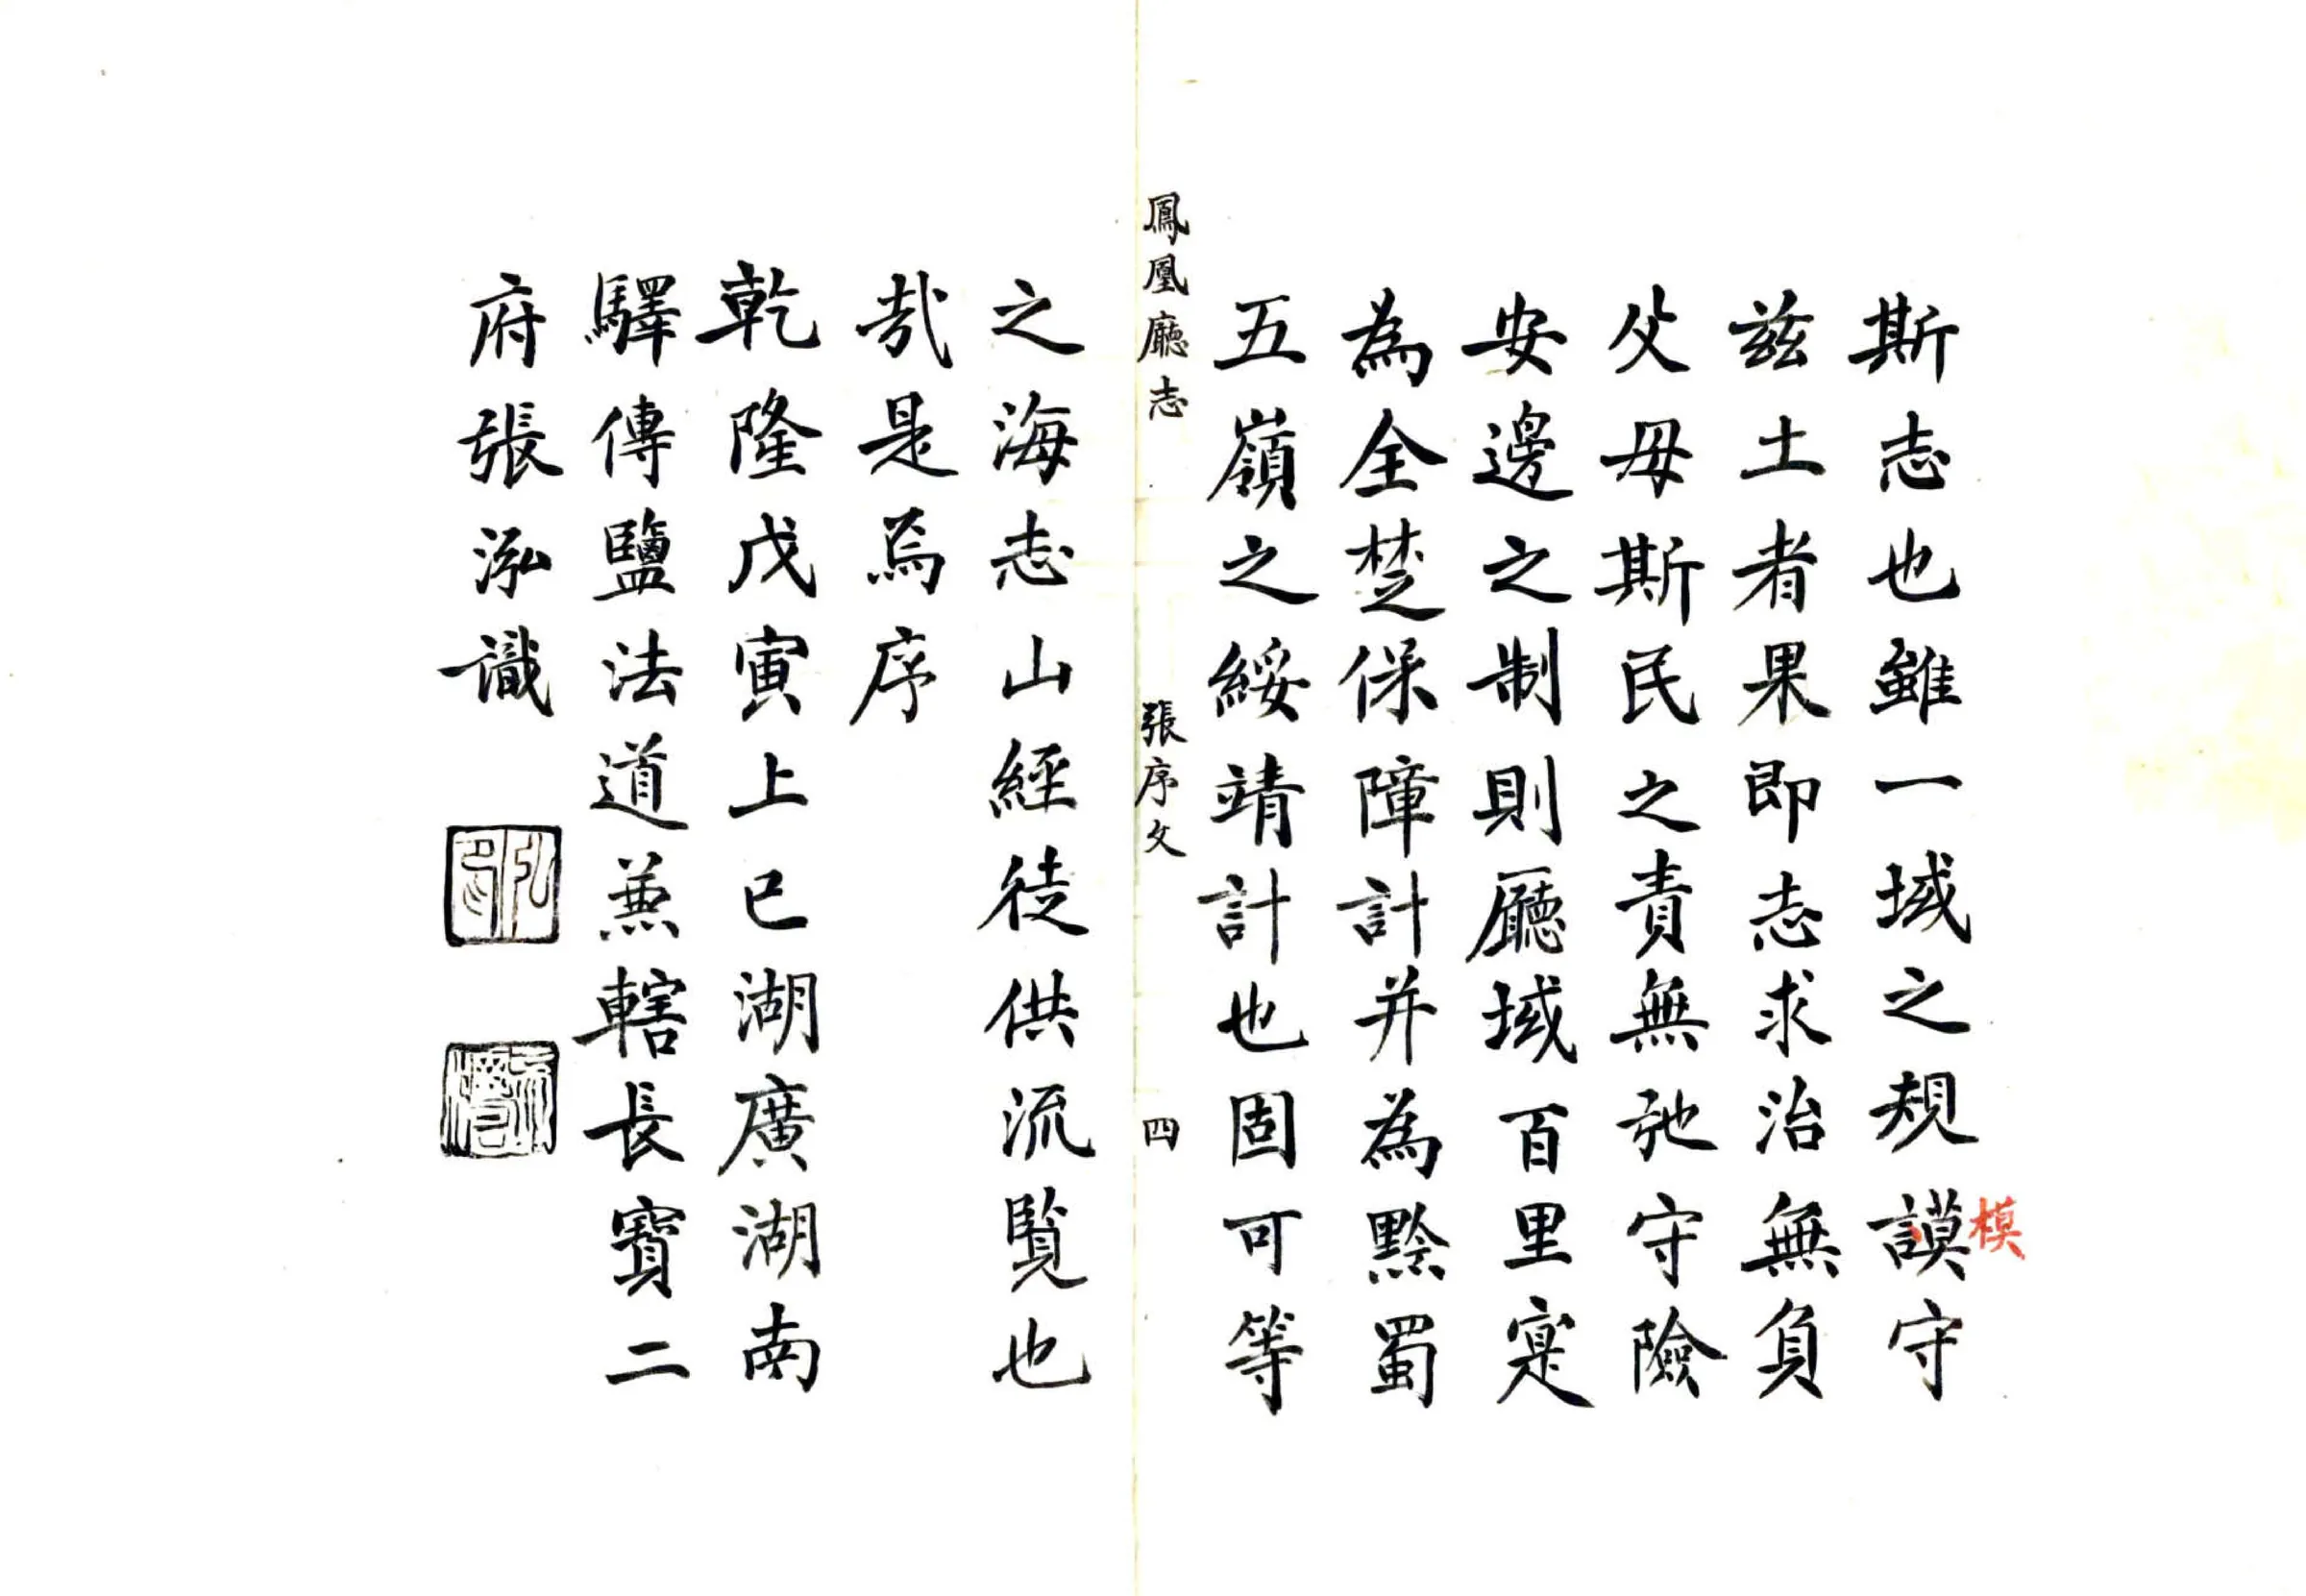 斯志也雖一域之規謨守
模
兹土者果即志求治無負
父母斯民之責無弛守險
安邊之制則廳域百里寔
為全楚保障計并為黔蜀
五嶺之綏靖計也固可等
鳳凰廳志 張序文 四
之海志山經徒供流覧也
㢤是焉序
乾隆戊寅上巳湖廣湖南
驛傳鹽法道兼轄長寶二
府張泓識